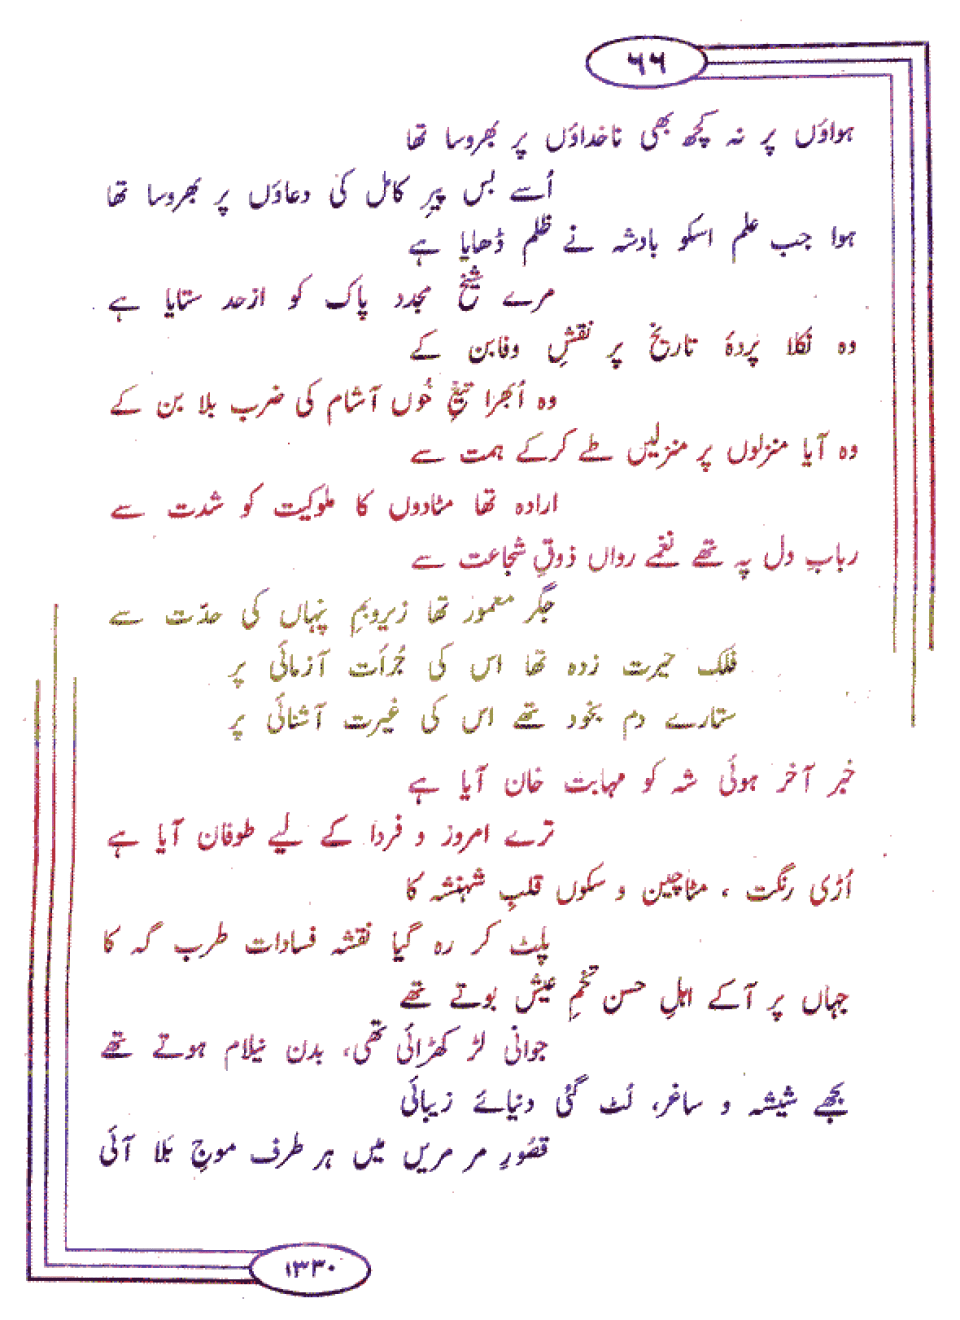 ۶۶
ہواؤں پر نہ کچھ بھی ناخداؤں پر بھروسا تھا
اُسے بس پیرِ کامل کی دعاؤں پر بھروسا تھا
ہوا جب علم اسکو بادشہ نے ظلم ڈھایا ہے
مرے شیخ مجدد پاک کو ازحد ستایا ہے
وہ نکلا پردۂ تاریخ پر نقشِ وفا بن کے
وہ اُبھرا تیغِ خُوں آشام کی ضرب بلا بن کے
وہ آیا منزلوں پر منزلیں طے کرکے ہمت سے
ارادہ تھا مٹادوں کا ملوکیت کو شدت سے
ربابِ دل پہ تھے نغمے رواں ذوقِ شجاعت سے
جگر معمور تھا زیروبمِ پنہاں کی حدّت سے
فلک حیرت زدہ تھا اس کی جُرأت آزمائی پر
ستارے دم بخود تھے اس کی غیرت آشنائی پر
خبر آخر ہوئی شہ کو مہابت خان آیا ہے
ترے امروز و فردا کے لیے طوفان آیا ہے
اُڑی رنگت ، مٹاچین و سکوں قلبِ شہنشہ کا
پلٹ کر رہ گیا نقشہ فسادات طرب گہ کا
جہاں پر آکے اہلِ حسن تخمِ عیش بوتے تھے
جوانی لڑ کھڑائی تھی، بدن نیلام ہوتے تھے
بجھے شیشہ و ساغر، لُٹ گئی دنیائے زیبائی
قصُورِ مر مریں میں ہر طرف موجِ بَلا آئی
۱۳۳۰